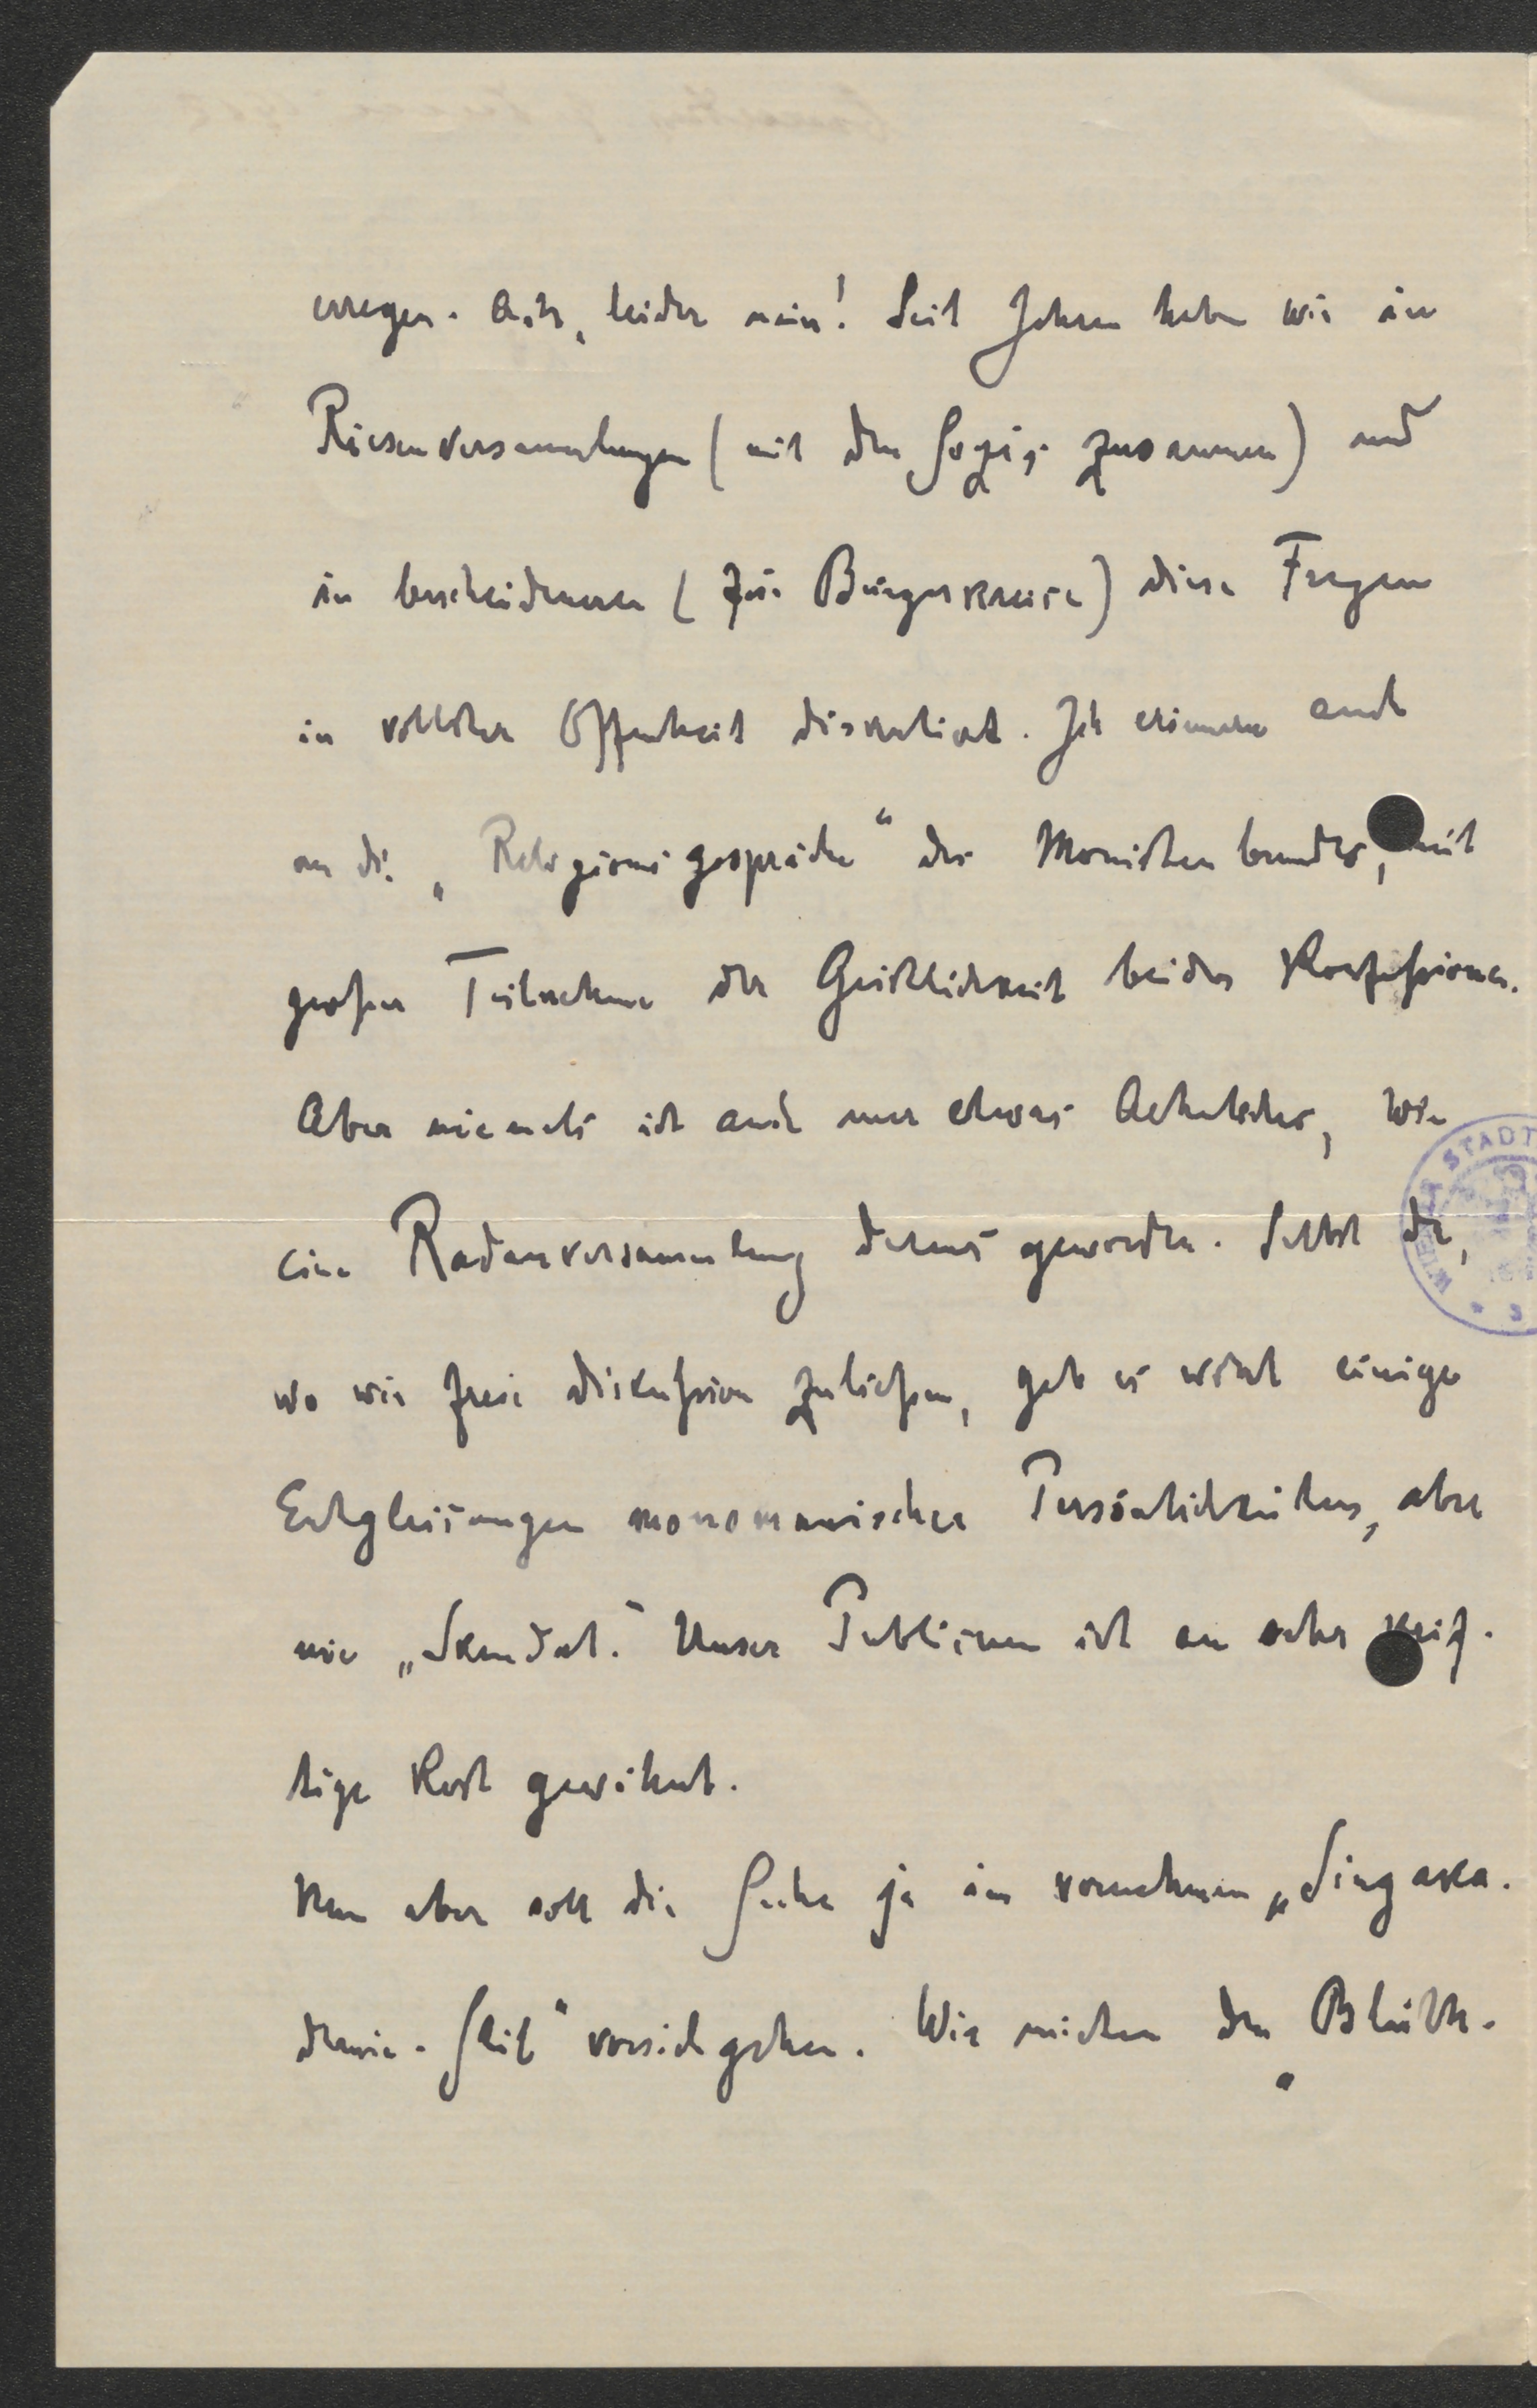 erregen. Ach, leider nein! Seit Jahren haben wir in
Riesenversammlungen (mit den Sozis zusammen) und
in bescheideneren (für Bürgerkreise) diese Fragen
in vollster Offenheit diskutiert. Ich erinnere auch
an die „Religionsgespräche“ des Monistenbundes, mit
großer Teilnahme der Geistlichkeit beider Konfessionen.
Aber niemals ist auch nur etwas Aehnliches, wie
eine Radauversammlung daraus geworden. Selbst da,
wo wir freie Diskussion zuließen, gab es wohl einige
Entgleisungen monomanischer Persönlichkeiten, aber
nie „Skandal.“ Unser Publikum ist an sehr kräf-
tige Kost gewöhnt.
Nun aber soll die Sache ja im vornehmen „Singaka-
demie-Stil“ vorsichgehen. Wir mieten den Blüth-
WIENER STADT